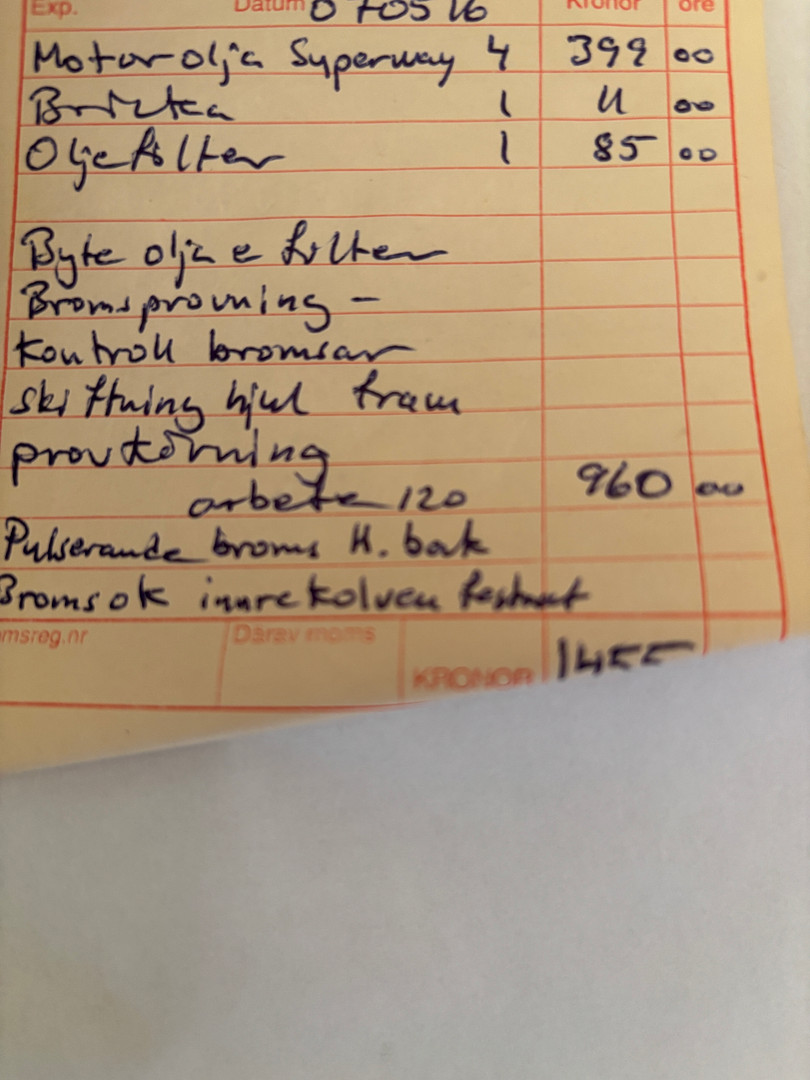 Exp. Datum 070516 Kronor öre
Motorolja Superway 4 399 00
Bricka 1 11 00
Oljefilter 1 85 00
Byte olja e filter
Bromsprovning -
kontroll bromsar
skiftning hjul fram
provkörning
arbete 120 960 00
Pulserande broms H. bak
Bromsok innre kolven fastnat
msreg.nr Darav moms KRONOR 1455